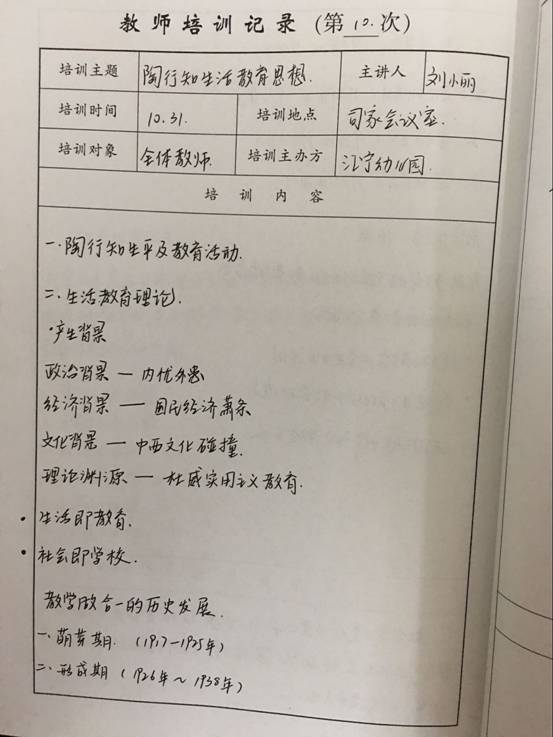 教师培训记录(第 10. 次)
培训主题 陶行知生活教育思想. 主讲人 刘小丽
培训时间 10.31. 培训地点 司家会议室.
培训对象 全体教师. 培训主办方 江宁幼儿园.
培训内容
一.陶行知生平及教育活动.
二.生活教育理论.
·产生背景
政治背景 — 内忧外患
经济背景 — 国民经济萧条
文化背景 — 中西文化碰撞.
理论渊源 — 杜威实用主义教育.
·生活即教育.
·社会即学校.
教学做合一的历史发展.
一.萌芽期. (1917—1925年)
二.形成期 (1926年~1938年)